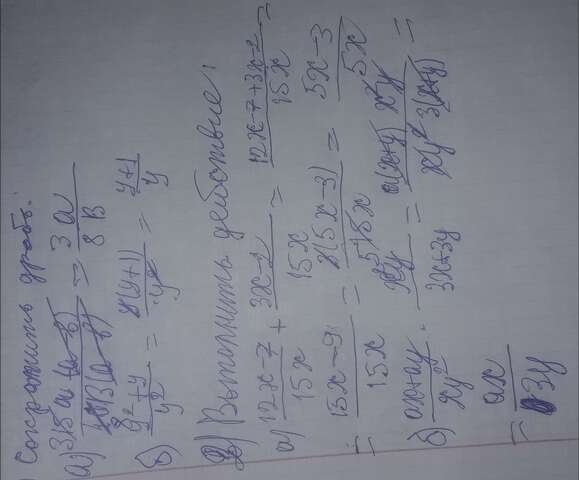 Сократить дробь:
а) 15a(a-b)/40B(a-b) = 3a/8B
б) y²+y/y² = y(y+1)/y² = y+1/y
2) Выполнить действие:
а) 12x-7/15x + 3x-2/15x = 12x-7+3x-2/15x =
= 15x-9/15x = 3(5x-3)/15x = 5x-3/5x
б) ax+ay/xy² · x²y/3x+3y = a(x+y) x²y/xy² 3(x+y) =
= ax/3y